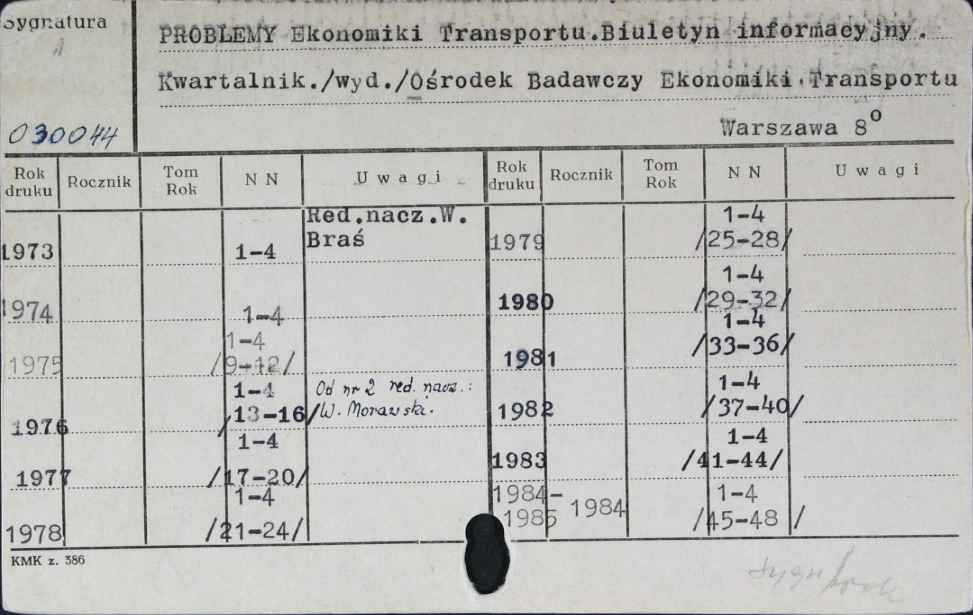 Sygnatura
PROBLEMY Ekonomiki Transportu.Biuletyn informacyjny.
Kwartalnik./wyd./Ośrodek Badawczy Ekonomiki Transportu
030044
Warszawa 8º
Rok druku Rocznik Tom Rok N N U w a g i Rok druku Rocznik Tom Rok N N U w a g i
1973 1-4 Red.nacz.W. Braś
1974 1-4
1975 1-4 /9-12/
1976 1-4 /13-16/ Od nr 2 red. nacz.: W. Morawski.
1977 1-4 /17-20/
1978 1-4 /21-24/
1979 1-4 /25-28/
1980 1-4 /29-32/
1981 1-4 /33-36/
1982 1-4 /37-40/
1983 1-4 /41-44/
1984-1985 1984 1-4 /45-48 /
KMK z. 386